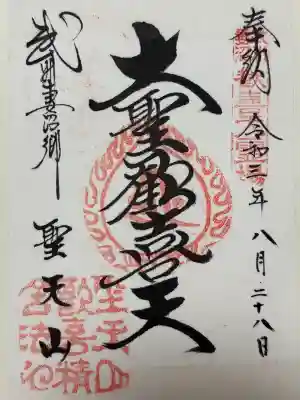 奉納 令和三年 八月二十八日
大聖歓喜天
武州妻沼郷 聖天山
聖天山
歓喜